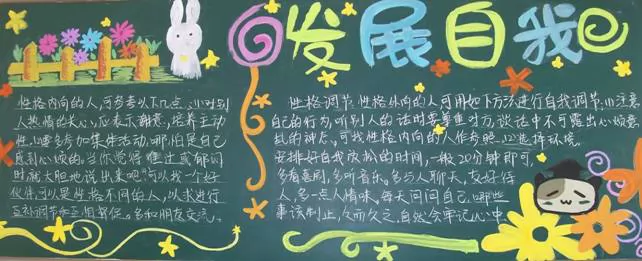 发展自我
性格内向的人,可参考以下几点:(1)对别
人热情的关心,应表示谢意,培养主动
性,(2)要多参加集体活动,哪怕是自己
感到心烦的。当你觉得难过或郁闷
时就大胆地说出来吧。可以找一个好
伙伴,可以是性格不同的人,以求进行
互补调节和互相督促。多和朋友交流。
性格调节:性格外向的人可用如下方法进行自我调节,(1)注意
自己的行为,听别人的话时要尊重对方,谈话中不可露出心烦意
乱的神态。可找性格内向的人作参照。(2)选择环境。
安排好自我放松的时间,一般20分钟即可。
多看喜剧,多听音乐。多与人聊天,友好待
人,多一点人情味。每天问问自己,哪些
事该制止,久而久之,自然会牢记心中